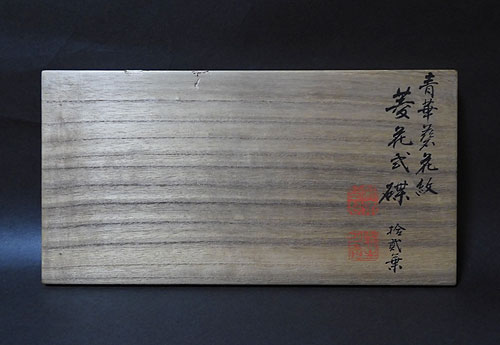 青華葵花紋
菱花式碟
拾貳葉